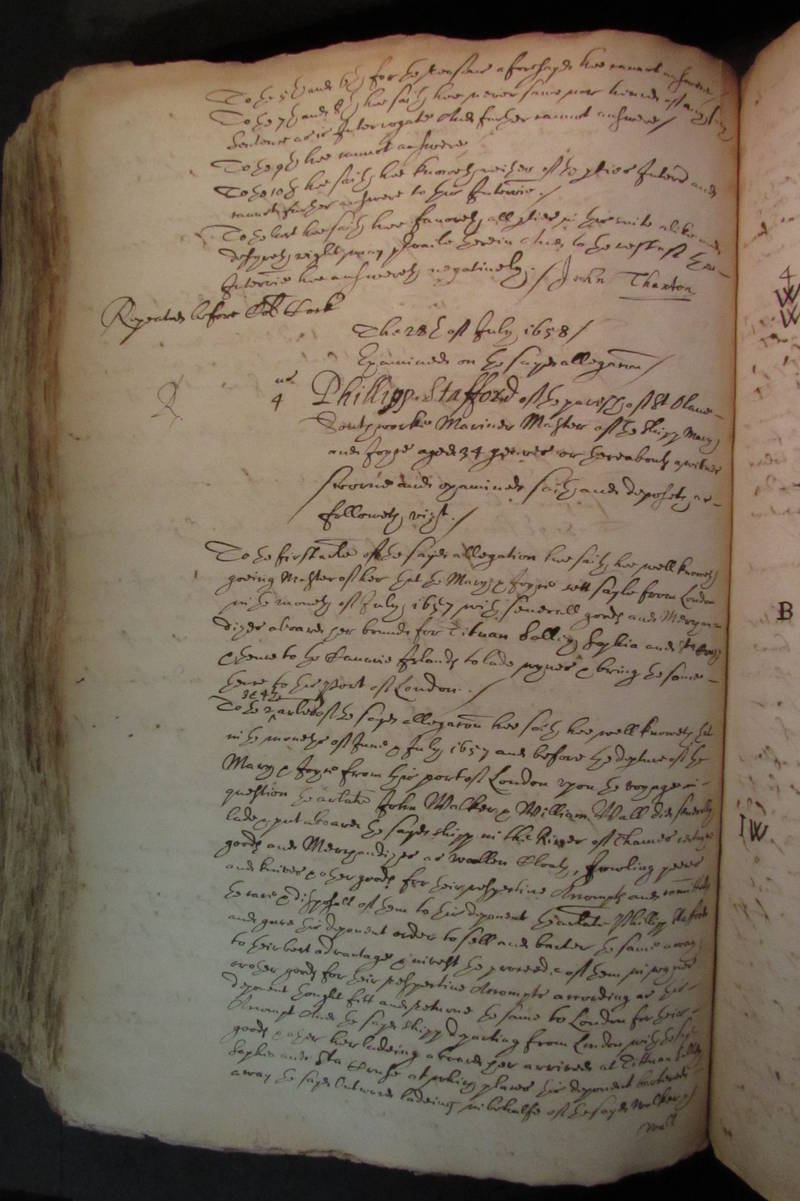 To the 5th and 6th for the reasons aforesayd hee cannot answere
To the 7th and 8th hee saith hee never saw nor heard of any such
sentence as is Interrogate And further cannot answere /
To the 9th hee cannot answere
To the 10th hee saith hee knoweth neither of the parties Interrd and
cannot further answere to this Interrie. /
To the last hee saith hee favoreth all parties in this suite alike and
desyreth right may prevaile herein And to the rest of the
Interrie hee answereth negatively. / John Thaxton
Repeated before Doctor
The 28th of July 1658 /
Examined on the sayd allegation
4 Phillipp Stafford of the parish of St Olave
Southworke Mariner Master of the shipp Mary
and Joyce aged 34 yeeres or thereabouts a witnes
sworne and examined saith and deposeth as
followeth vizt. /
To the first article of the sayd allegation hee saith hee well knoweth
goeing Master of her that the Mary & Joyce sett sayle from London
in the moneth of July 1657 with severall goods and Merchan
dizes aboard her bound for Tituan Sally Saphia and Sta Cruz
& thence to the Canarie Islands to lade wynes & bring the same
heere to this port of London. /
To the 2 3 & 4th articles of the sayd allegation hee saith hee well knoweth that
in the moneths of June & July 1657 and before the departure of the
Mary & Joyce from this port of London upon the voyage in
question the arlate John Walker & William Wall did severally
lade & put aboard the sayd shipp in the River of Thames certayne
goods and Merchandizes as woollen Cloath, fowling peeces
and knives & other goods for their respective Accompts and committed
the care & disposall of them to this deponent the arlate Phillipp Stafford
and gave this deponent order to sell and barter the same away
to their best advantage & invest the proceed of them in wynes
or other goods for their respective Accompts according as this
deponent thought fitt and returne the same to London for their
Accompt And the sayd shipp departing from London with the sayd
goods & other her ladeing aboard her arrived at Tittuan Sally
Saphia and Sta Cruse at which places this deponent bartered
away the sayd Outward ladeing in behalfe of the sayd Walker &
Wall
4
W
W
B
IW